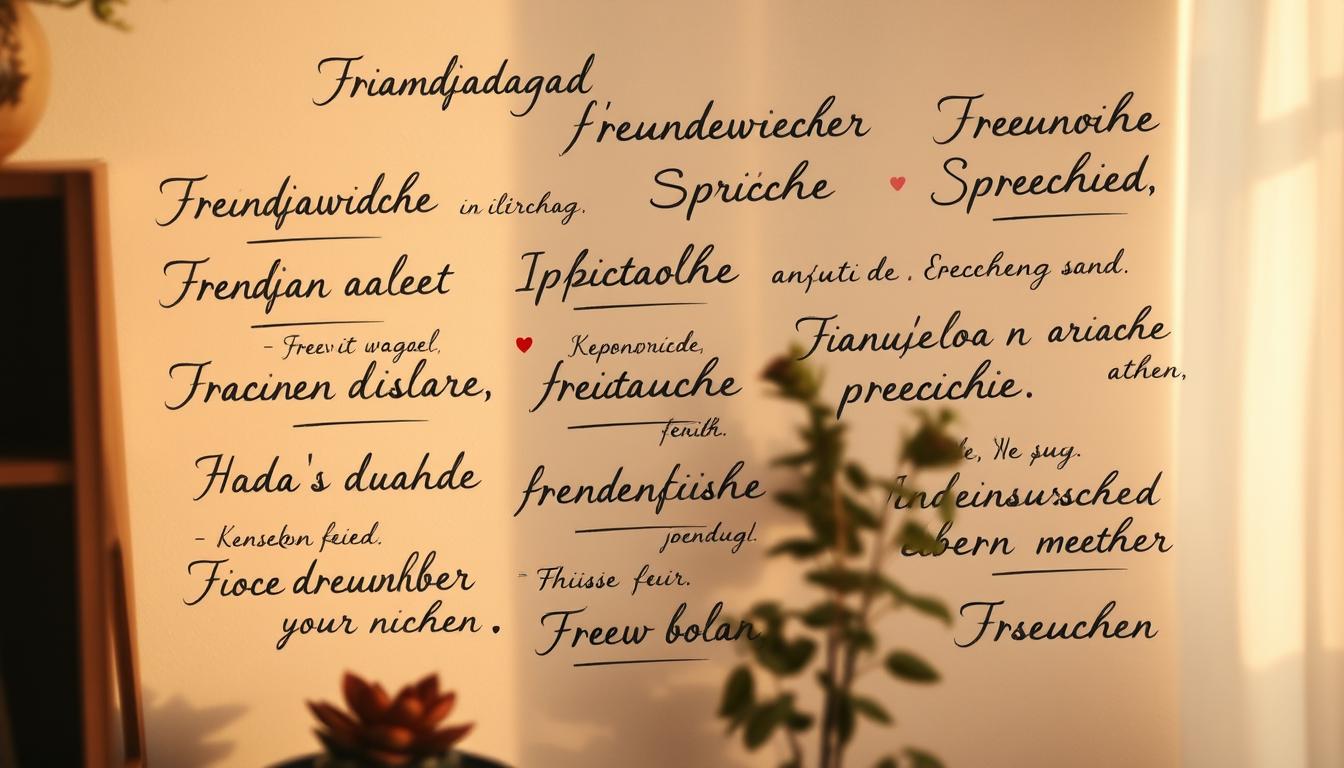 Friamdjadagad
f'reundewiecher
Freeunoihe
Freindjawidche in ilirchag.
Spricche
Spreechied,
Frendjan aaleet
Ippictaolhe
anjuti de . Ereccheng sand.
- Freevit wagael,
Keponoricde,
Fianujeloa n ariache
Fracinen dislare,
freidtauche
preecichie.
athen,
fenith.
Hada's duahde
frendenfiishe
e, We sug.
indeinsursched
- Kensebon feied.
joendugl.
bern meether
Fioce dreunhber
Thiisse feuir.
your nichen.
Freew bolan
Frseuchen